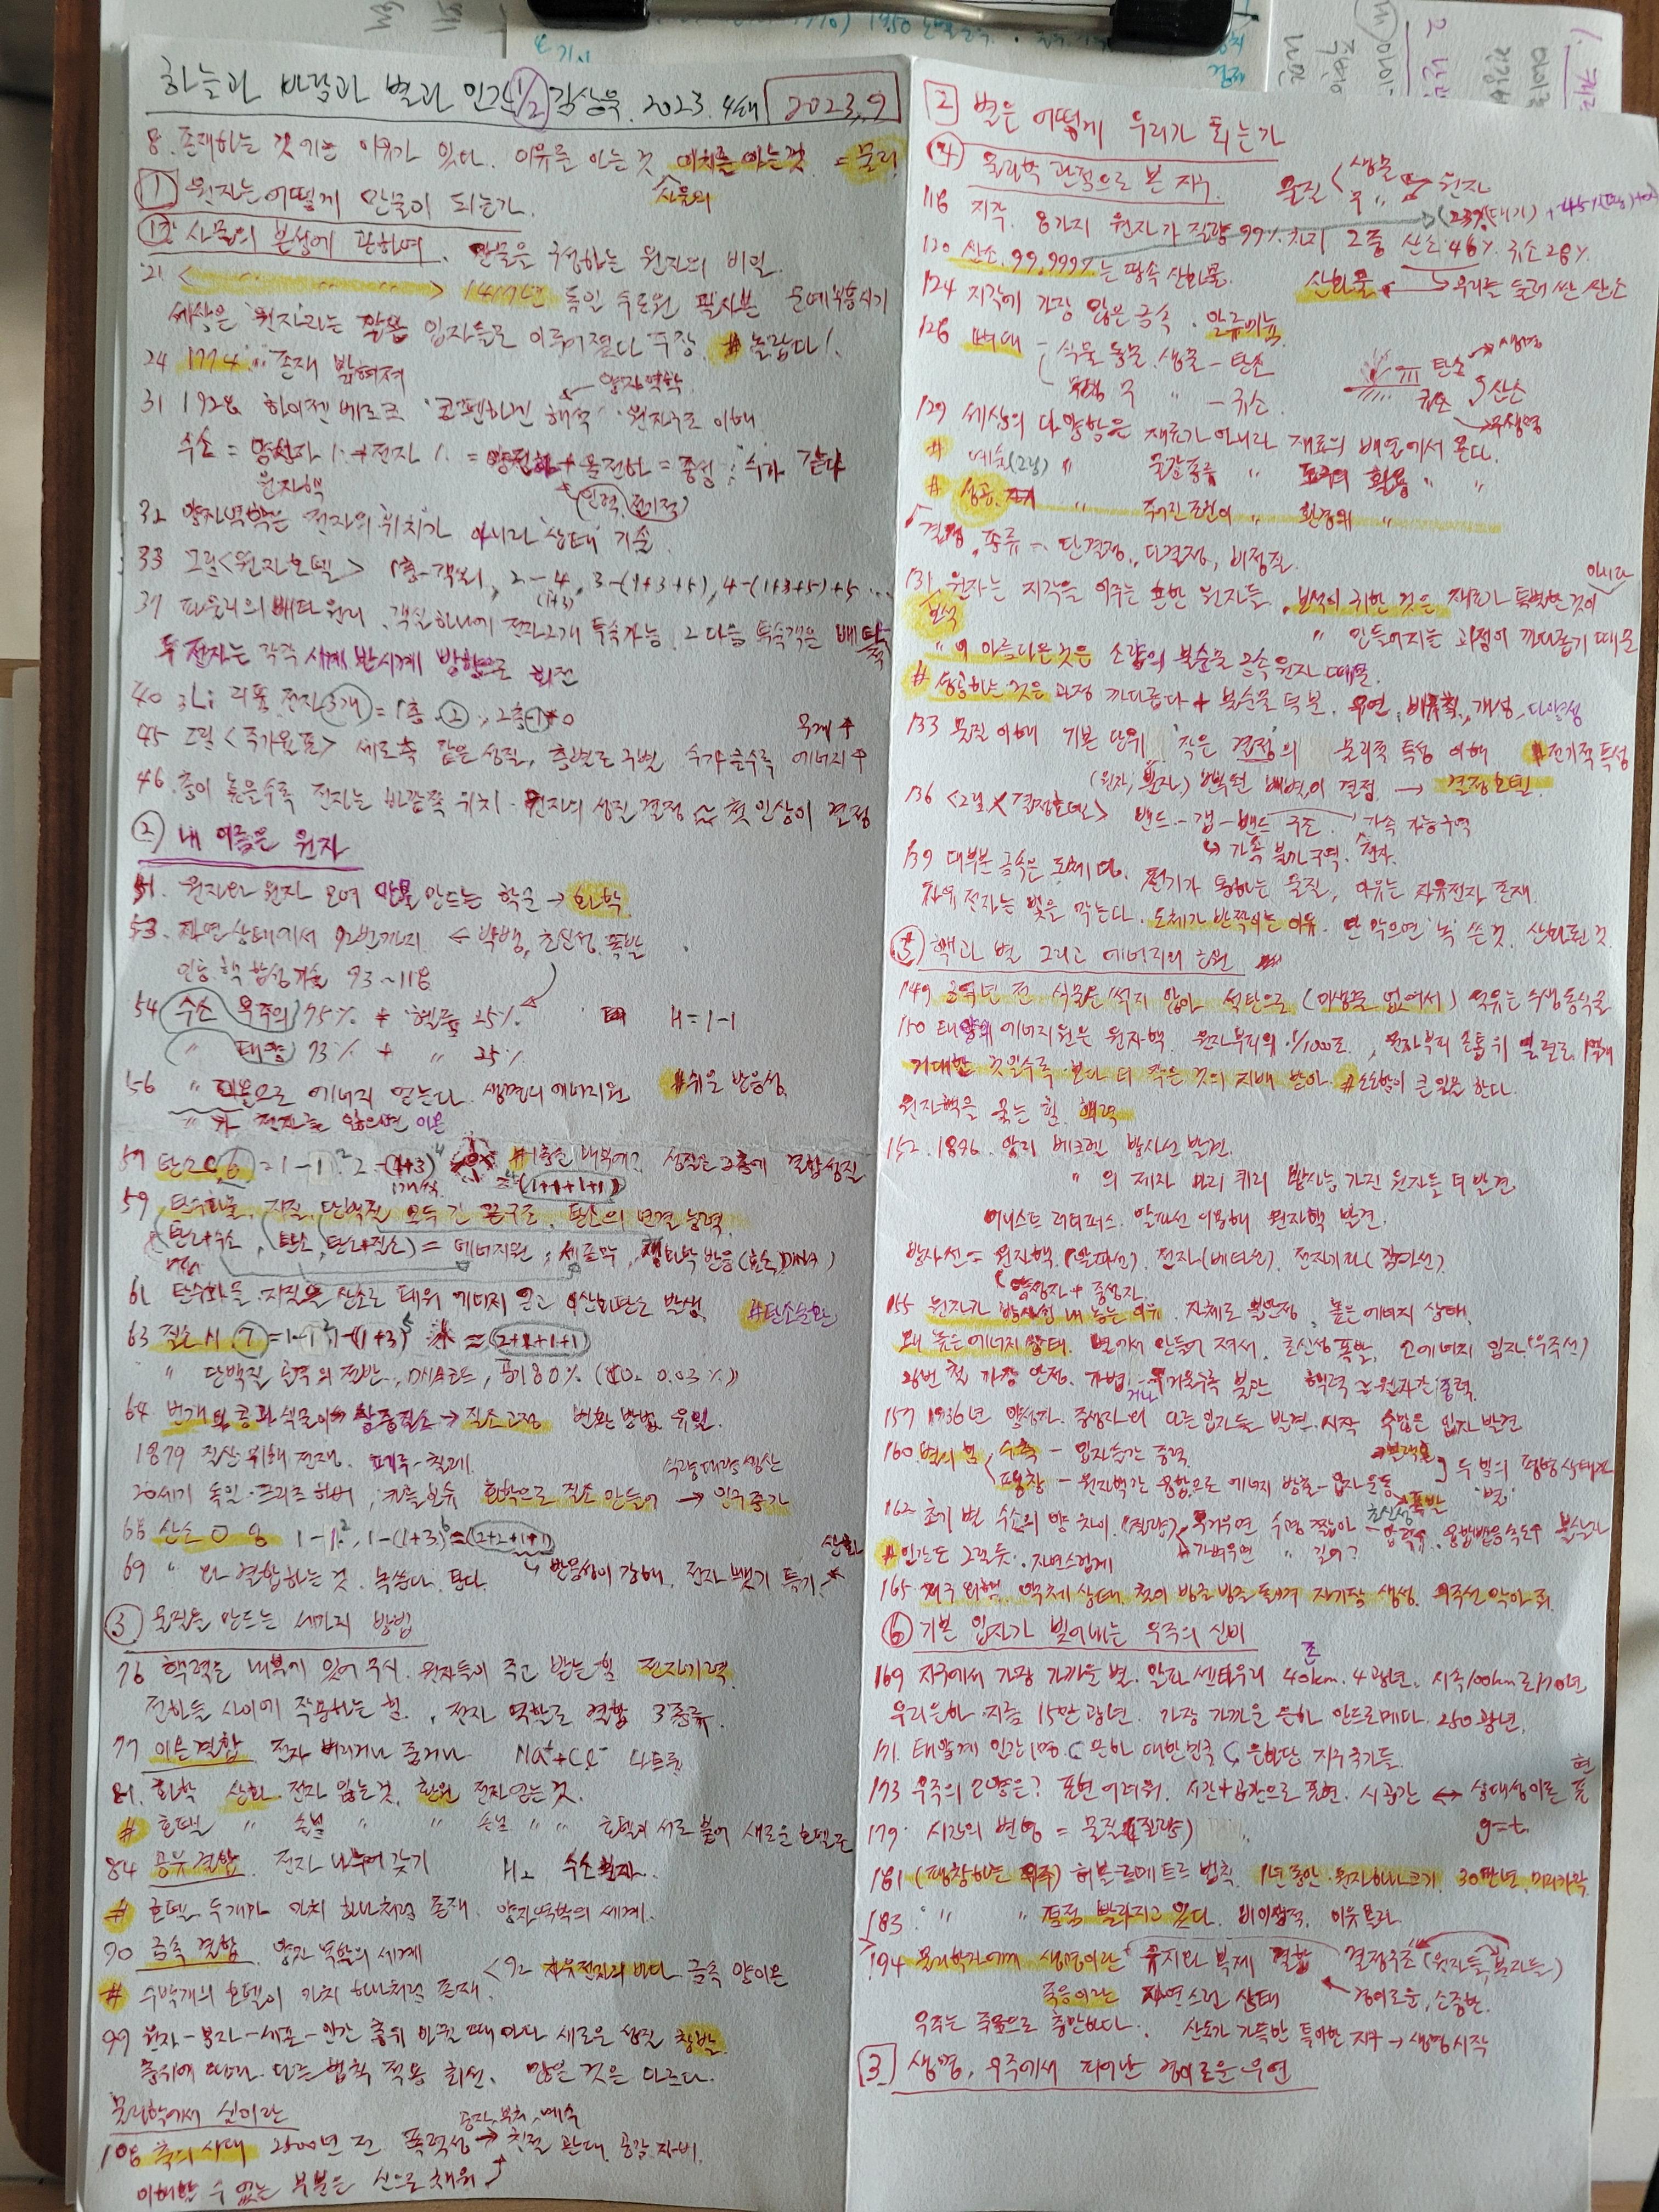 하늘과 바람과 별과 인간 1/2 김상욱. 2023. 4쇄 2023. 9
8. 존재하는 것에는 이유가 있다. 이유를 아는 것 이치를 아는 것 = 물리
사물의
1 원자는 어떻게 만물이 되는가.
사물의 본성에 관하여. 만물을 구성하는 원자의 비밀.
21 < > 1417년 독일 수도원 필사본 문예부흥시기
세상은 원자라는 입자들로 이루어졌다 주장. # 놀랍다!
24 1774 존재 밝혀져
양자역학
31 1928 하이젠베르크 '코펜하겐 해석' 원자구조 이해
수소 = 양성자 1 + 전자 1 = 양전하 + 음전하 = 중성 : 수가 같다
원자핵 (인력, 전기적)
32 양자역학은 전자의 위치가 아니라 '상태' 기술
33 그림 <원자호텔> 1층-객실1, 2-4, 3-(1+3+5), 4-(1+3+5)+5 ...
(1+3)
37 파울리의 배타원리, 객실하나에 전자2개 투숙가능. 2 다음 투숙객은 배타
두 전자는 각각 시계 반시계 방향으로 회전
40 3Li 리튬 전자3개 = 1층 2, 2층
무게↑
45 그림 <주기율표> 세로축 같은 성질, 층별로 구별 수가 클수록 에너지↑
46. 층이 높을수록 전자는 바깥쪽 위치. 원자의 성질 결정 첫인상이 결정
② 내 이름은 원자
51. 원자와 원자 모여 만물 만드는 학문 → 화학
53. 자연상태에서 92번까지 ← 빅뱅, 초신성 폭발
인공 핵합성기술 93~118
54 수소 우주의 75% + 헬륨 25% H=1-1
" 태양 73% + " 25%
56 " 이온으로 에너지 얻는다. 생명의 에너지원 #쉬운 반응성
" 가 전자를 잃으면 이온
59 탄소C 6 = 1-1² 2-(1+3)⁴ #1층은 내부에? 성질은 2층에 결합성질
(1+1+1+1)
59 탄수화물, 지질, 단백질 모두 긴 끈구조. 탄소의 연결능력
(탄소+수소, 탄소, 탄소+질소) = 에너지원, 세포막, 생화학 반응(효소, DNA)
61 탄수화물 지질을 산소로 태워 에너지 얻고 이산화탄소 발생. #탄소순환
63 질소 N 7 = 1-1² 1-(1+3)⁵ = (2+1+1+1)
" 단백질 효소의 전반, DNA코드, 공기80% (CO₂ 0.03%)
64 번개와 콩과식물이 공중질소 → 질소고정 변환방법 유일
1879 질산 위해 전쟁. 페루-칠레.
식량대량생산
20세기 독일 프리츠 하버, 카를 보슈 화학으로 질소 만들어 → 인구증가
68 산소 O 8 1-1², 1-(1+3)⁶ = (2+2+1+1)
산화
69 " 와 결합하는 것. 녹슨다. 탄다. 반응성이 강해. 전자 뺏기 특기
③ 물질을 만드는 세가지 방법
76 핵력은 내부에 있어 무시. 원자들이 주고 받는 힘 전자기력
전하들 사이에 작용하는 힘., 전자 역할로 결합 3종류.
77 이온결합 전자 버리거나 줍거나 Na⁺+Cl⁻ 나트륨
81. 화학 산화. 전자 잃는 것, 환원 전자얻는 것.
# 호텔 " 손님 " " 손님 " " 호텔과 서로 붙어 새로운 호텔로
84 공유결합. 전자 나누어 갖기 H₂ 수소분자.
# 호텔 두개가 마치 하나처럼 존재. 양자역학의 세계.
90 금속결합. 양자역학의 세계 <92 자유전자의 바다 금속 양이온
# 수백개의 호텔이 마치 하나처럼 존재.
99 원자-분자-세포-인간 층위 바뀔 때마다 새로운 성질 창발.
층위에 따라 다른 법칙 적용 최선. 많은 것은 다르다.
물리학에서 신이란
공자, 부처, 예수
108 축의시대 2500년 전 폭력성 → 친절 관대 공감 자비
이해할 수 없는 부분은 신으로 채워
2 별은 어떻게 우리가 되는가
④ 물리학 관점으로 본 지구. 물질 < 생물 무 " 원자
118 지각. 8가지 원자가 질량 99% 차지 2중 산소46% 규소28%.
120 산소. 99.999%는 땅속 산화물. 산화물. 우리를 둘러싼 산소
124 지각에 가장 많은 금속. 알루미늄
128 뼈대 - 식물 동물 생물 - 탄소 탄소 → 생명
무 " - 규소 규소 산소
→ 무생명
129 세상의 다양함은 재료가 아니라 재료의 배열에서 온다.
# 예술(그림) " 물감종류 " 도구의 활용 " "
# 성공 " 주어진 조건이 " 환경의 "
결정. 종류 - 단결정, 다결정, 비정질.
131 원자는 지각을 이루는 흔한 원자들. 보석이 귀한 것은 재료가 특별한 것이 아니라
보석 " 만들어지는 과정이 까다롭기 때문
" 이 아름다운 것은 소량의 불순물 금속원자 때문.
# 성공하는 것은 과정 까다롭다 + 불순물 덕분. 우연, 개성, 다양성
133 물질 이해 기본 단위 '작은 결정'의 물리적 특성 이해 #전기적 특성
(원자, 분자) 반복된 배열이 결정 → 결정호텔.
136 <그림 결정호텔> 밴드-갭-밴드 구조. 가속 가능구역
가속 불가구역. 전자.
139 대부분 금속은 도체다. 전기가 통하는 물질, 이유는 자유전자 존재.
자유전자는 빛을 막는다. 도체가 반짝이는 이유. 안 막으면 '녹'쓴 것, 산화된 것.
⑤ 핵과 별 그리고 에너지의 근원
149 3억년 전 식물은 썩지 않아 석탄으로 (미생물 없어서) 석유는 수생동식물
150 태양의 에너지원은 원자핵. 원자부피의 1/1000조,
거대한 것일수록 보다 더 작은 것의 지배 받아. #소소함이 큰일을 한다.
원자핵을 묶는 힘. 핵력
152. 1896. 앙리 베크렐 방사선 발견.
" 의 제자 마리 퀴리 방사능 가진 원자들 더 발견
어니스트 러더퍼드. 알파선 이용해 원자핵 발견.
방사선 = 원자핵(알파선), 전자(베타선), 전자기파(감마선)
양성자 + 중성자
155 원자가 방사선 내놓는 이유. 자체로 불안정, 높은 에너지 상태.
왜 높은 에너지 상태. 별에서 만들어 져서. 초신성 폭발, 고에너지 입자(우주선)
26번 철 가장 안정. 가볍거나 무거울수록 불안 핵력
157 1936년 양성자. 중성자와 다른 입자들 발견 시작 수많은 입자 발견
160 별의 힘 수축 - 입자들간 중력
팽창 - 원자핵간 융합으로 에너지 방출 - 입자운동 두 힘의 평형상태가 '별'
162 초기 별 수소의 양 차이(질량). 무거우면 수명 짧아 초신성 폭발
#인간도 그렇듯. 자연스럽게 가벼우면 " 길어?
165 지구 외핵 액체상태. 철이 빙글빙글 돌아가 자기장 생성. 우주선 막아줘.
⑥ 기본 입자가 빚어내는 우주의 신비
169 지구에서 가장 가까운 별. 알파 센타우리 40조km. 4광년.
우리은하 지름 15만광년. 가장 가까운 은하 안드로메다. 250광년.
171. 태양계 인간1명 ⊂ 은하 대한민국 ⊂ 은하단 지구국가들.
173 우주의 모양은? 표현 어려워. 시간+공간으로 표현. 시공간 ↔ 상대성이론 표현
179. 시간의 변형 = 물질(질량) g=t
181 (팽창하는 우주) 허블 르메트르 법칙. 1년동안 원자하나크기. 30만년. 머리카락
183. " " 점점 빨라지고 있다. 비이성적. 이유 몰라
194 물리학자에게 생명이란 유지와 복제 결합 결정구조(원자들, 분자들)
죽음이란 자연스런 상태 경이로운, 소중한.
우주는 죽음으로 충만하다. 산소가 가득한 특이한 지구 → 생명시작
3 생명, 우주에서 피어난 경이로운 우연